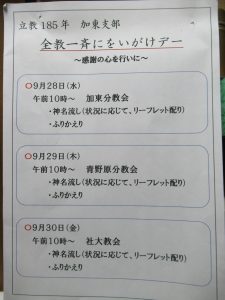 立教185年　加東支部
全教一斉にをいがけデー
～感謝の心を行いに～
○9月28日(水)
午前10時～　加東分教会
・神名流し(状況に応じて、リーフレット配り)
・ふりかえり
○9月29日(木)
午前10時～　青野原分教会
・神名流し(状況に応じて、リーフレット配り)
・ふりかえり
○9月30日(金)
午前10時～　社大教会
・神名流し(状況に応じて、リーフレット配り)
・ふりかえり